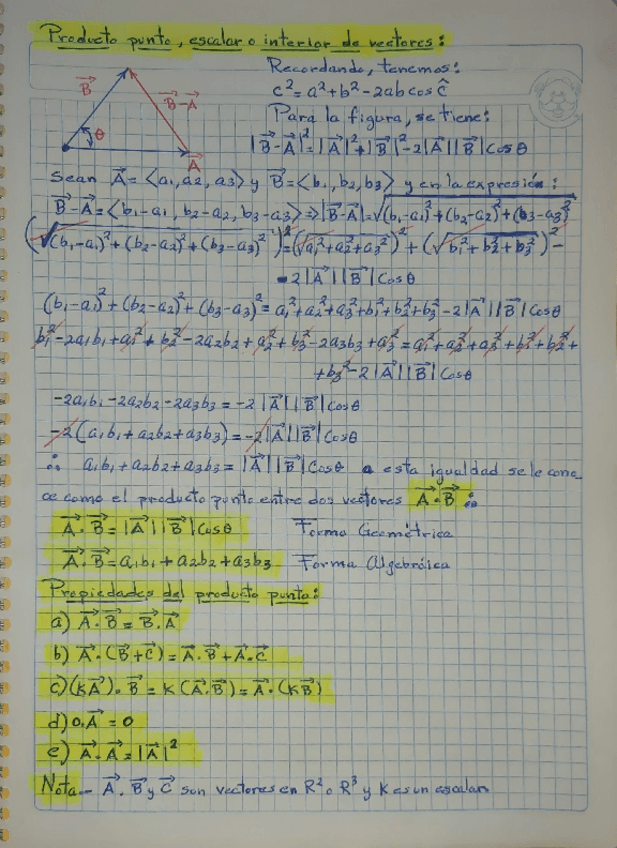 Producto punto, escalar o interior de vectores:
Recordando, tenemos:
c² = a² + b² - 2ab cos Ĉ
Para la figura, se tiene:
|B⃗-A⃗|² = |A⃗|² + |B⃗|² - 2|A⃗||B⃗| Cos θ
B⃗
B⃗-A⃗
θ
A⃗
Sean A⃗ = <a₁, a₂, a₃> y B⃗ = <b₁, b₂, b₃> y en la expresión:
B⃗-A⃗ = <b₁-a₁, b₂-a₂, b₃-a₃> ⇒ |B⃗-A⃗| = √(b₁-a₁)² + (b₂-a₂)² + (b₃-a₃)²
(√(b₁-a₁)² + (b₂-a₂)² + (b₃-a₃)²)² = (√a₁²+a₂²+a₃²)² + (√b₁²+b₂²+b₃²)² -
- 2|A⃗||B⃗| Cos θ
(b₁-a₁)² + (b₂-a₂)² + (b₃-a₃)² = a₁²+a₂²+a₃²+b₁²+b₂²+b₃² - 2|A⃗||B⃗| Cos θ
b₁² - 2a₁b₁ + a₁² + b₂² - 2a₂b₂ + a₂² + b₃² - 2a₃b₃ + a₃² = a₁² + a₂² + a₃² + b₁² + b₂² +
+ b₃² - 2|A⃗||B⃗| Cos θ
-2a₁b₁ - 2a₂b₂ - 2a₃b₃ = -2|A⃗||B⃗| Cos θ
-2(a₁b₁ + a₂b₂ + a₃b₃) = -2|A⃗||B⃗| Cos θ
∴ a₁b₁ + a₂b₂ + a₃b₃ = |A⃗||B⃗| Cos θ a esta igualdad se le cono_
ce como el producto punto entre dos vectores A⃗·B⃗ ∴
A⃗·B⃗ = |A⃗||B⃗| Cos θ Forma Geométrica
A⃗·B⃗ = a₁b₁ + a₂b₂ + a₃b₃ Forma Algebráica
Propiedades del producto punto:
a) A⃗·B⃗ = B⃗·A⃗
b) A⃗·(B⃗+C⃗) = A⃗·B⃗ + A⃗·C⃗
c) (KA⃗)·B⃗ = K(A⃗·B⃗) = A⃗·(KB⃗)
d) 0·A⃗ = 0
e) A⃗·A⃗ = |A⃗|²
Nota.- A⃗, B⃗ y C⃗ son vectores en R² o R³ y K es un escalar